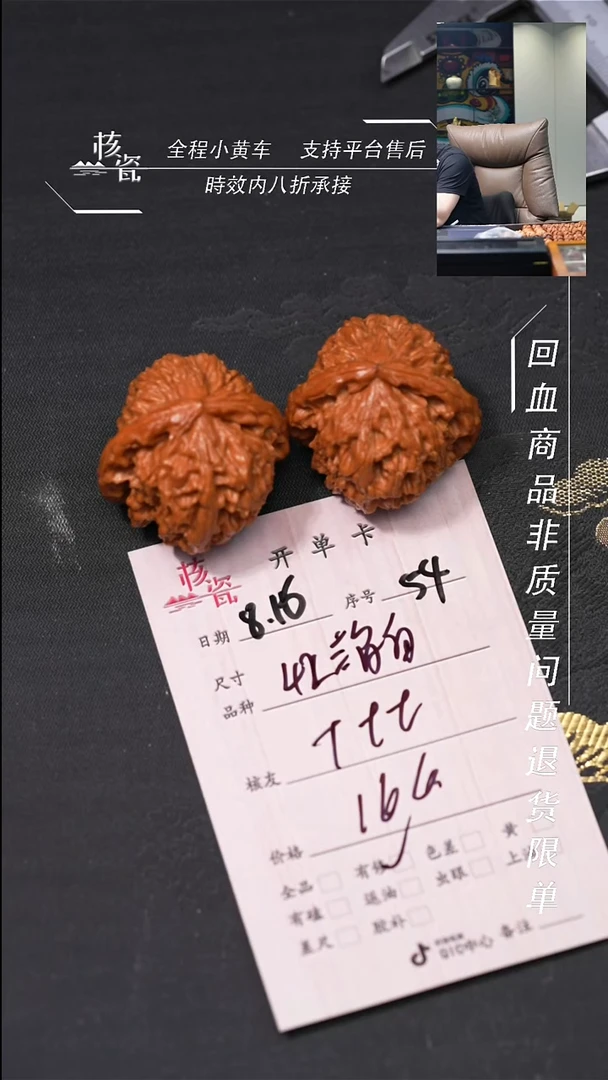 核瓷
全程小黄车 支持平台售后
時效内八折承接
回血商品非质量问题退货限单
核瓷
开单卡
日期 8.16 序号 54
尺寸 42
品种
ttt
核友
价格
全品 有修 色差 黄
有磕 运油 虫眼 上
差尺 胶补
QIC中心 备注